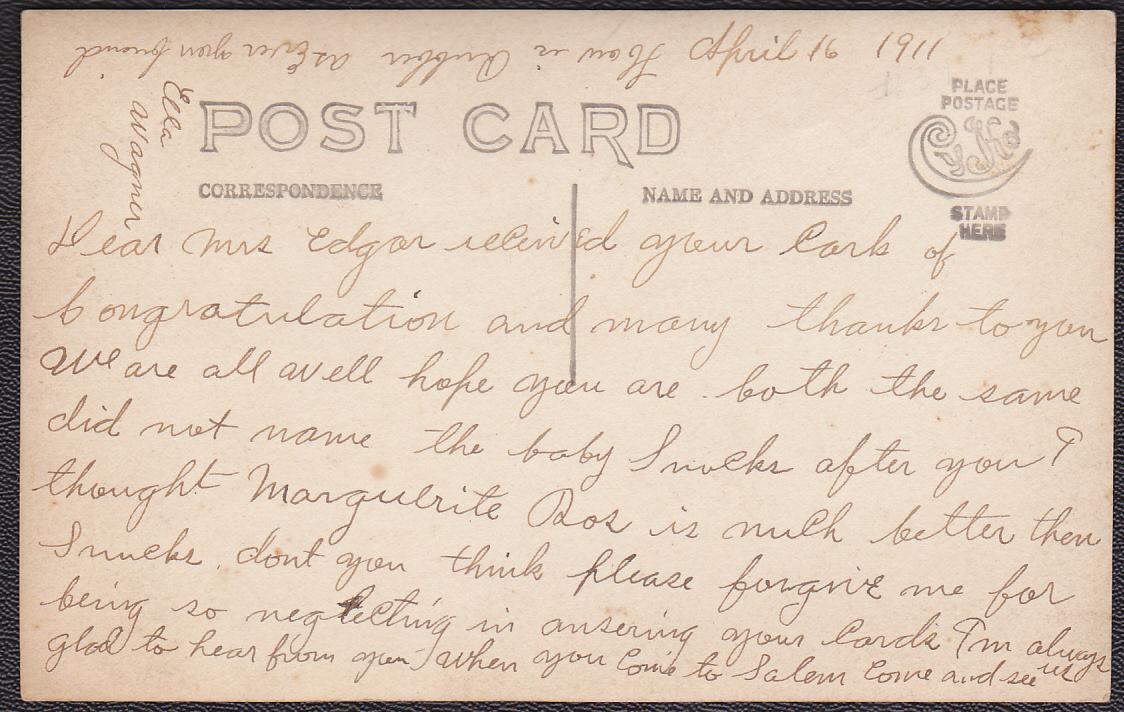 April 16 1911
POST CARD
CORRESPONDENCE
NAME AND ADDRESS
PLACE
POSTAGE
STAMP
HERE
Dear Mrs Edgar recieved your Cark of
Congratulation and many thanks to you
We are all well hope you are both the same
did not name the baby Snucks after you I
thought Marguerite Ros is much better then
Snucks dont you think please forgive me for
being so neglecting in ansering your Cards I'm always
glad to hear from you When you Come to Salem Come and see us
How is Rubber as Ever your friend
Ella
Wagner